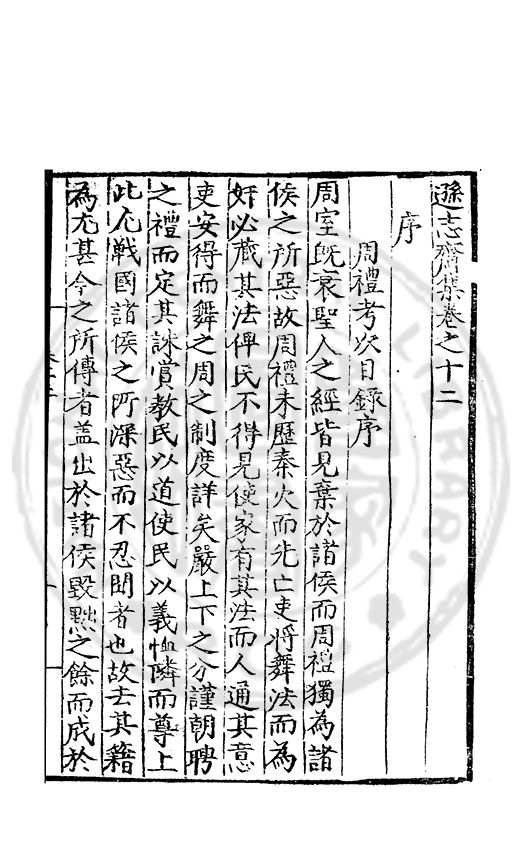 遜志齋集卷之十二
序
周禮考次目錄序
周室既衰聖人之經皆見棄於諸侯而周禮獨為諸
侯之所惡故周禮未歷秦火而先亡吏將舞法而為
奸必藏其法俾民不得見使家有其法而人通其意
吏安得而舞之周之制度詳矣嚴上下之分謹朝聘
之禮而定其誅賞教民以道使民以義恤隣而尊上
此尤戰國諸侯之所深惡而不忍聞者也故去其籍
為尤甚今之所傳者盖出於諸侯毀黜之餘而成於